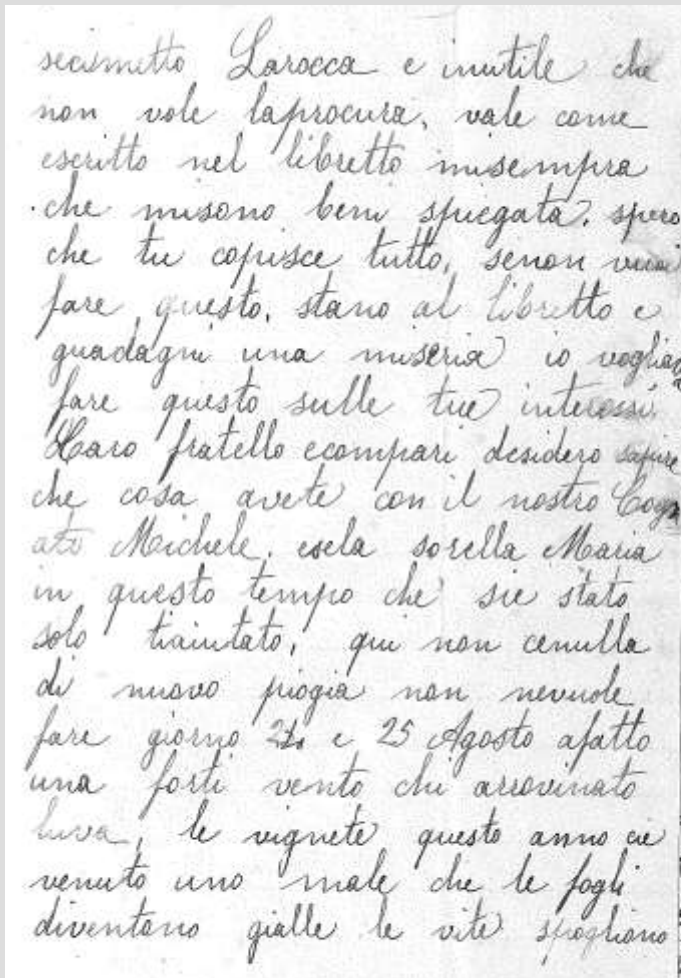 secismetto Larocca e inutile che
non vole laprocura, vale come
escritto nel libretto misempra
che misono beni spiegata. spero
che tu copisce tutto, senon vuoi
fare questo, stano al libretto e
guadagni una miseria io voglio
fare questo sulle tue interessi.
Caro fratello ecompari desidero sapire
che cosa avete con il nostro Cogn
ato Michele. esela sorella Maria
in questo tempo che sie stato
solo taiutato, qui non cenulla
di nuovo piogia non nevuole
fare giorno 24 e 25 Agosto afatto
una forti vento chi arrovinato
luva, le vignete questo anno cie
venuto uno male che le fogli
diventano gialle le vite spogliono